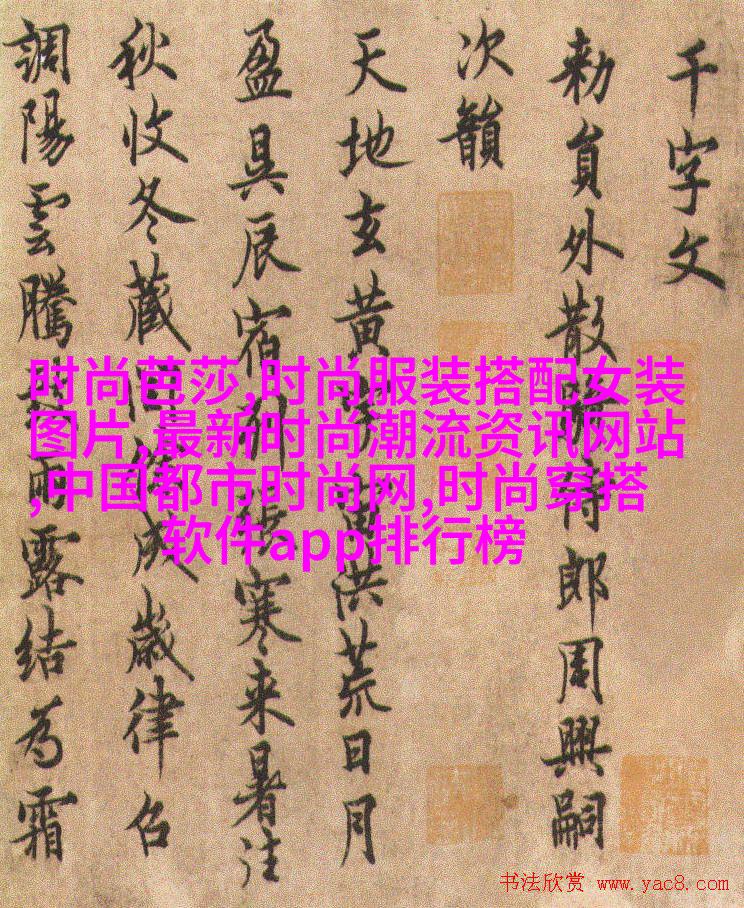 千字文
勑員外散侍郎周興嗣
次韻
天地玄黃洪荒日月
盈昃辰宿列張寒来暑往
秋收冬藏成歲律召
調陽雲騰雨露結為霜
时尚芭莎,时尚服装搭配女装
图片,最新时尚潮流资讯网站
,中国都市时尚网,时尚穿搭
软件app排行榜
书法欣赏 www.yac8.com